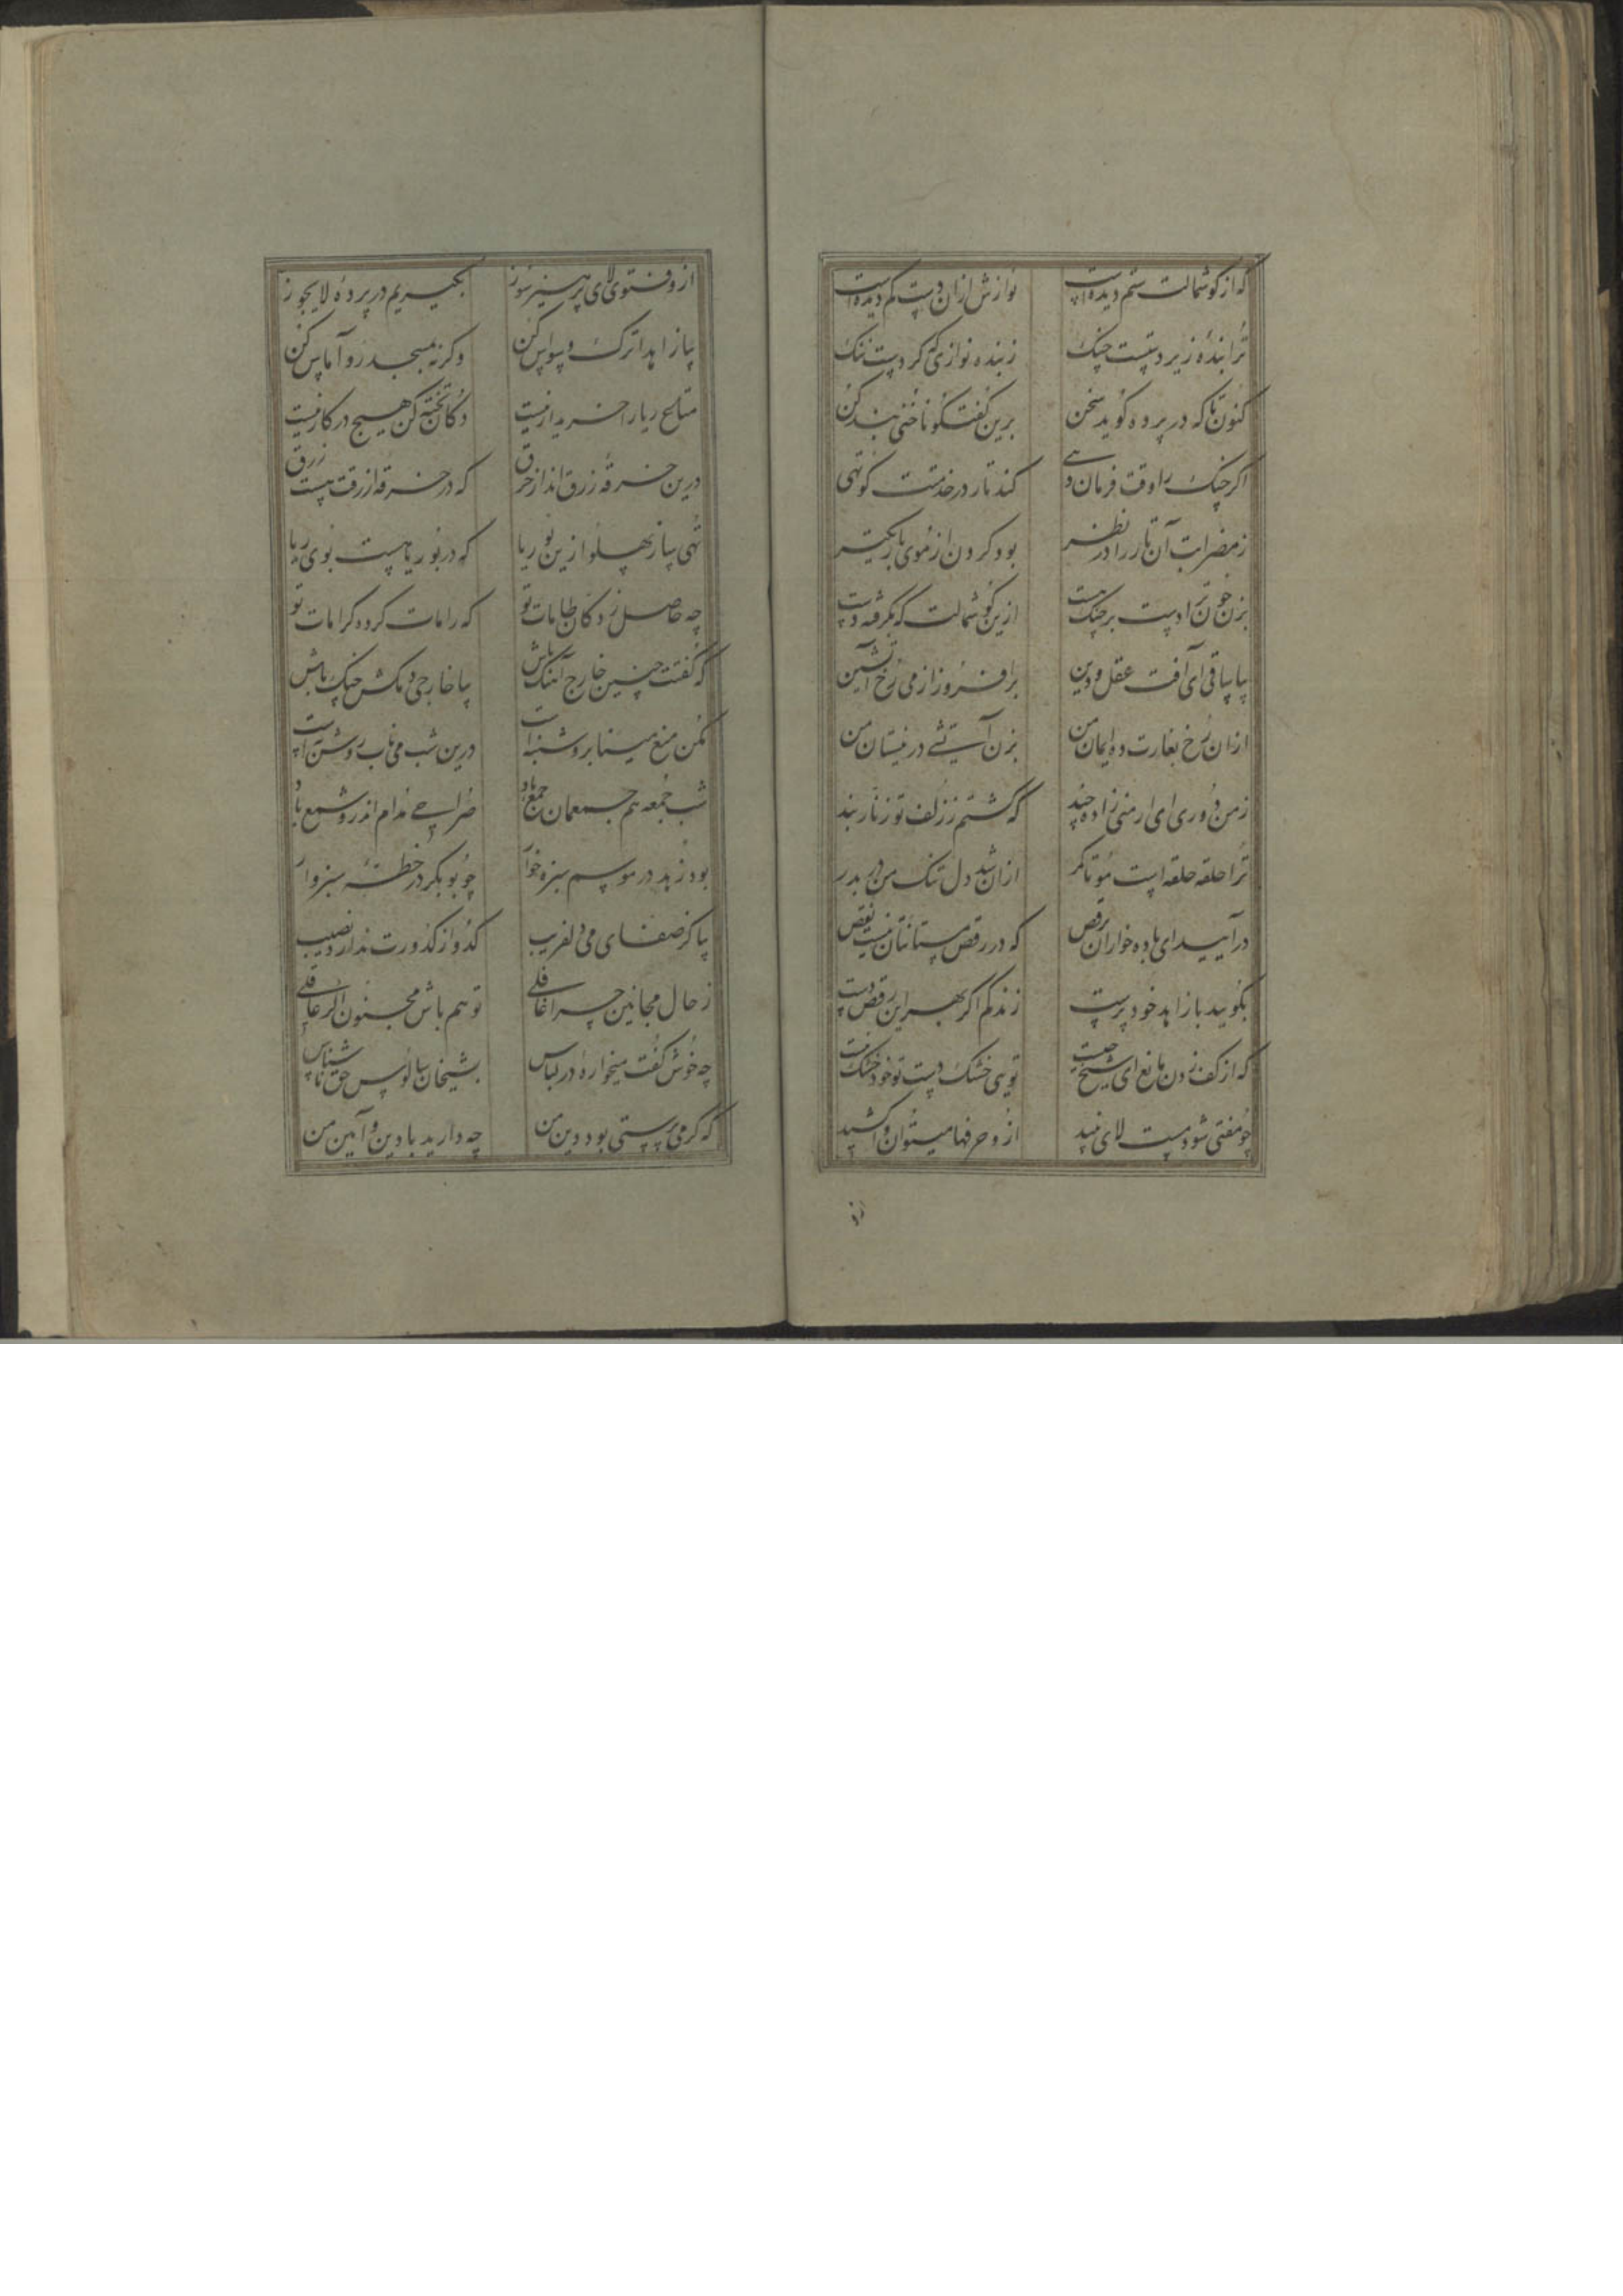 که از گوشمالت ستم دیده است نوازش ازان دست کم دیده است
ترا بندهٔ زیر دستست چنگ ز بنده نوازی که کردست ننگ
کنون تا که در پرده گوید سخن برین گفتگو ناخنی بند کن
اگر چنگ را وقت فرمان دهی کند تار در خدمتت کوتهی
ز مضرابت آن تار را در نظر بود کردن از موی باریکتر
بزن چون ترا دست بر چنگ هست ازین گوشمالت که بگرفته دست
بیا ساقی ای آفت عقل و دین برافروز از می رخ آتشین
ازان رخ بغارت ده ایمان من بزن آتشی در نیستان من
ز من دوری ای ارمنی زاده چند که گشتم ز زلف تو زنار بند
ترا حلقه حلقه است مو تا کمر ازان شد دل تنگ من در بدر
درآیید ای باده خواران برقص که در رقص مستانتان نیست نقص
بگویید با زاهد خود پرست زندگم اگر بهر این رقص دست
که از کف زدن مانع ای شیخ چیست تویی خشک دست تو خود خشک نیست
چو مفتی شود مست لای نبید ازو حرفها میتوان واکشید
از
ازو فتوی لای پرهیز سوز بگیریم در پردهٔ لایجوز
بیا زاهدا ترک وسواس کن وگرنه مسجد رو آماس کن
متاع ریا را خریدار نیست دکان تخته کن هیچ در کار نیست
درین خرقهٔ زرق انداز حرق که در خرقه ازرقت هست زرق
تهی ساز پهلو ازین بوریا که در بوریا هست بوی ریا
چه حاصل ز دکان طامات تو که را مات کرده کرامات تو
که گفتت چنین خارج آهنگ باش بیا خارجی دمکش چنگ باش
مکن منع مینا بروشنی است درین شب می ناب روشنتر است
شب جمعه هم جمعمان جمع باد صراحی مدام اندرو شمع باد
بود زهد در موسم سبزه خوار چو بوبکر در خطهٔ سبزوار
بیا کز صفای می دلفریب کدو از کدورت ندارد نصیب
ز حال مجانین چرا غافلی تو هم باش مجنون اگر عاقلی
چه خوش گفت میخواره در لباس بشیخان سالوس حق ناشناس
که گر می پرستی بود دین من چه دارید با دین و آیین من